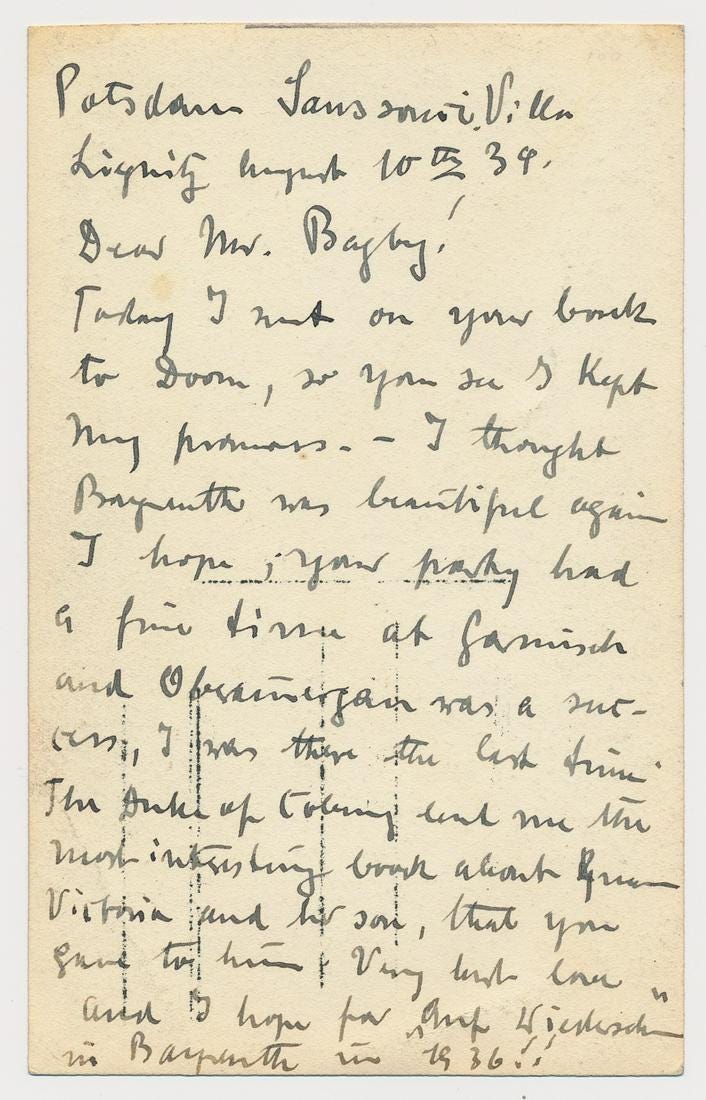 Potsdam Sanssouci, Villa
Liegnitz August 10th 34.
Dear Mr. Bagby!
Today I sent on your book
to Doorn, so you see I Kept
my promess. - I thought
Bayreuth was beautiful again
I hope, your party had
a fine time at Garmisch
and Oberamergau was a suc-
cess, I was there the last time
The Duke of Coburg lent me the
most interesting book about Queen
Victoria and her son, that you
gave to him. Very best love
and I hope for „Auf Wiedersehn"
in Bayreuth in 1936!!